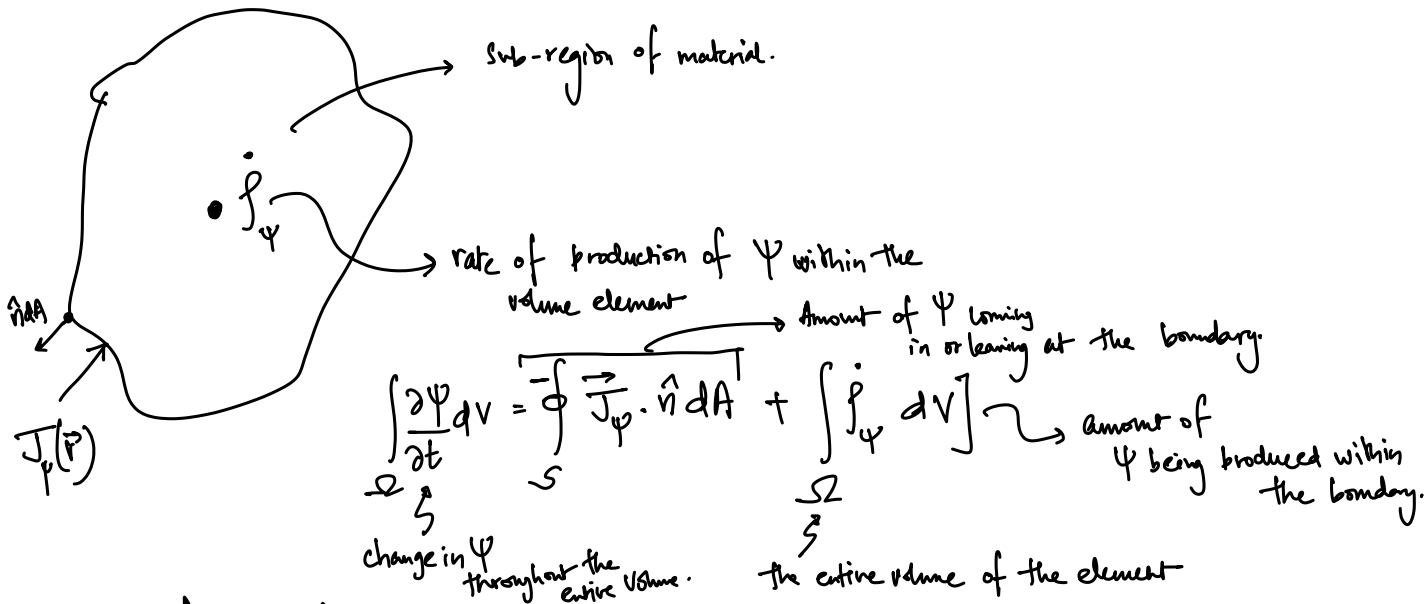 sub-region of material.
ρ̇_ψ
rate of production of ψ within the
volume element
n̂dA
Amount of ψ coming
in or leaving at the boundary.
J_ψ(r⃗)
∫_Ω ∂ψ/∂t dV = -∮_S J⃗_ψ · n̂ dA + ∫_Ω ρ̇_ψ dV]
amount of
ψ being produced within
the boundary.
change in ψ
throughout the
entire volume.
the entire volume of the element